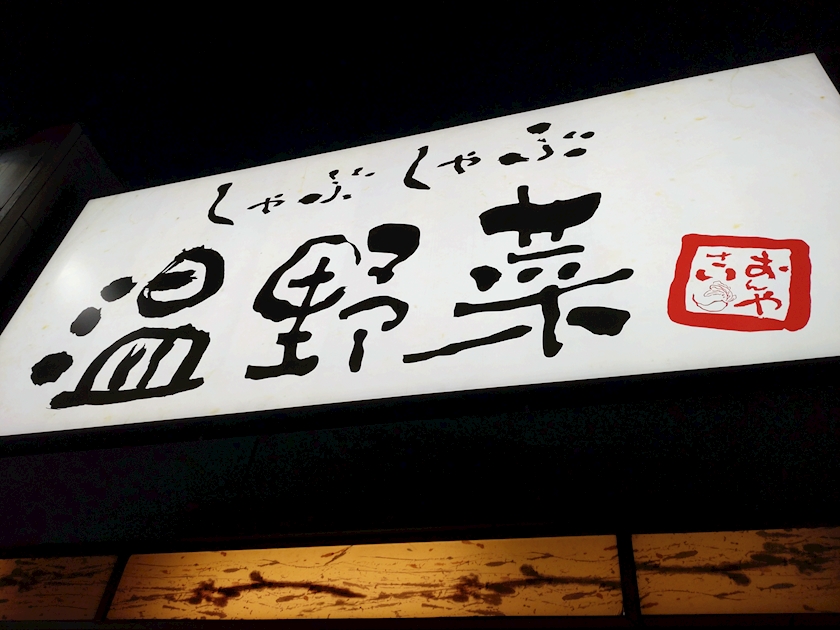 しゃぶしゃぶ
温野菜
おんや
さい